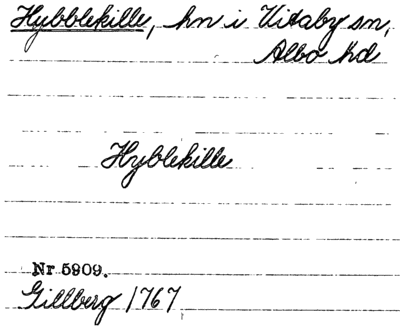 Hybblekille, hn i Vitaby sn,
Albo hd
Hyblekille
Nr 5909.
Gillberg 1767